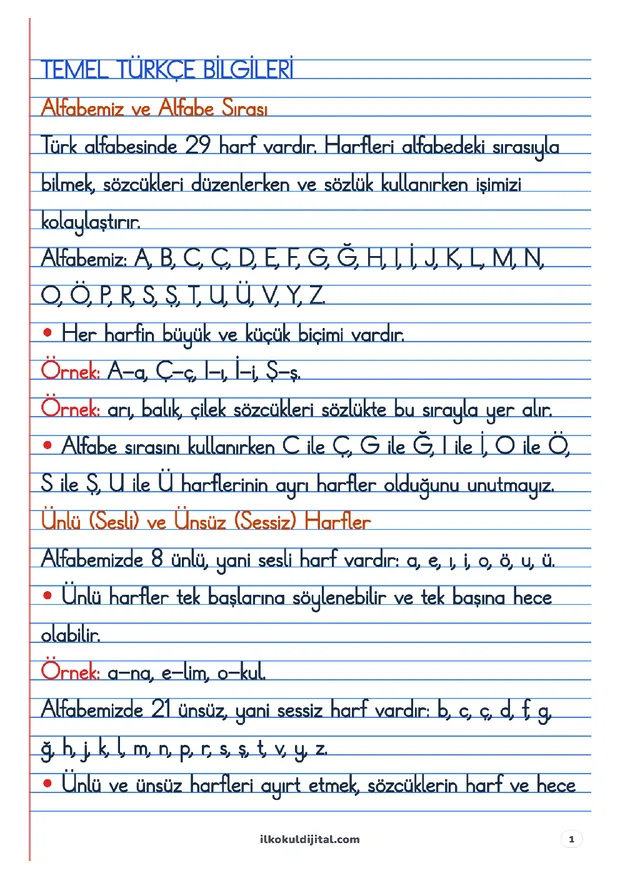 TEMEL TÜRKÇE BİLGİLERİ
Alfabemiz ve Alfabe Sırası
Türk alfabesinde 29 harf vardır. Harfleri alfabedeki sırasıyla
bilmek, sözcükleri düzenlerken ve sözlük kullanırken işimizi
kolaylaştırır.
Alfabemiz: A, B, C, Ç, D, E, F, G, Ğ, H, I, İ, J, K, L, M, N,
O, Ö, P, R, S, Ş, T, U, Ü, V, Y, Z.
• Her harfin büyük ve küçük biçimi vardır.
Örnek: A–a, Ç–ç, I–ı, İ–i, Ş–ş.
Örnek: arı, balık, çilek sözcükleri sözlükte bu sırayla yer alır.
• Alfabe sırasını kullanırken C ile Ç, G ile Ğ, I ile İ, O ile Ö,
S ile Ş, U ile Ü harflerinin ayrı harfler olduğunu unutmayız.
Ünlü (Sesli) ve Ünsüz (Sessiz) Harfler
Alfabemizde 8 ünlü, yani sesli harf vardır: a, e, ı, i, o, ö, u, ü.
• Ünlü harfler tek başlarına söylenebilir ve tek başına hece
olabilir.
Örnek: a–na, e–lim, o–kul.
Alfabemizde 21 ünsüz, yani sessiz harf vardır: b, c, ç, d, f, g,
ğ, h, j, k, l, m, n, p, r, s, ş, t, v, y, z.
• Ünlü ve ünsüz harfleri ayırt etmek, sözcüklerin harf ve hece
ilkokuldijital.com
1